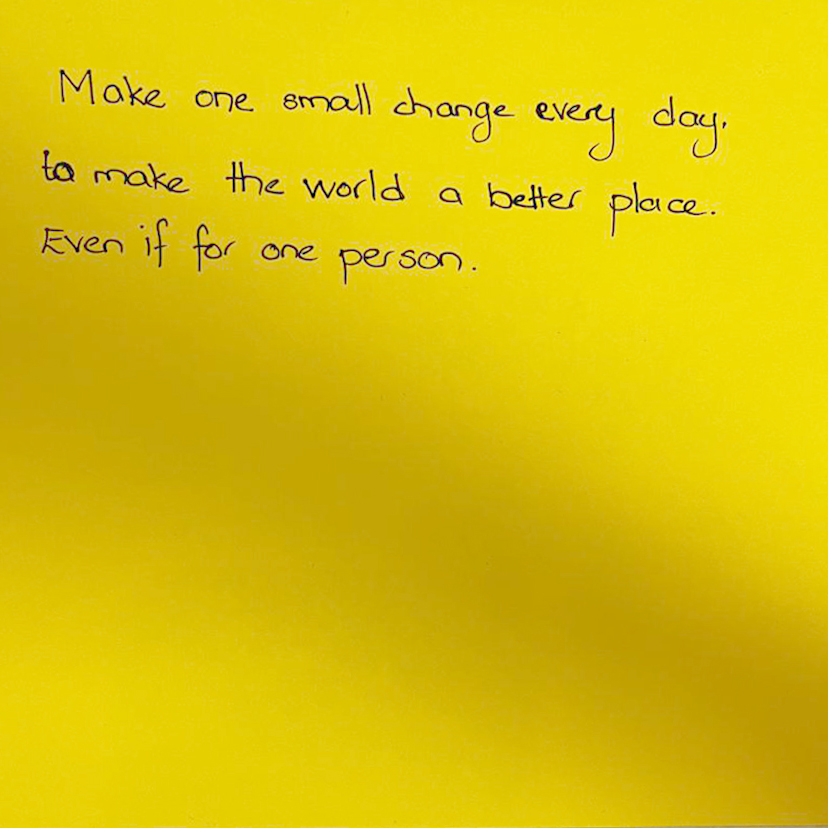 Make one small change every day,
to make the world a better place.
Even if for one person.